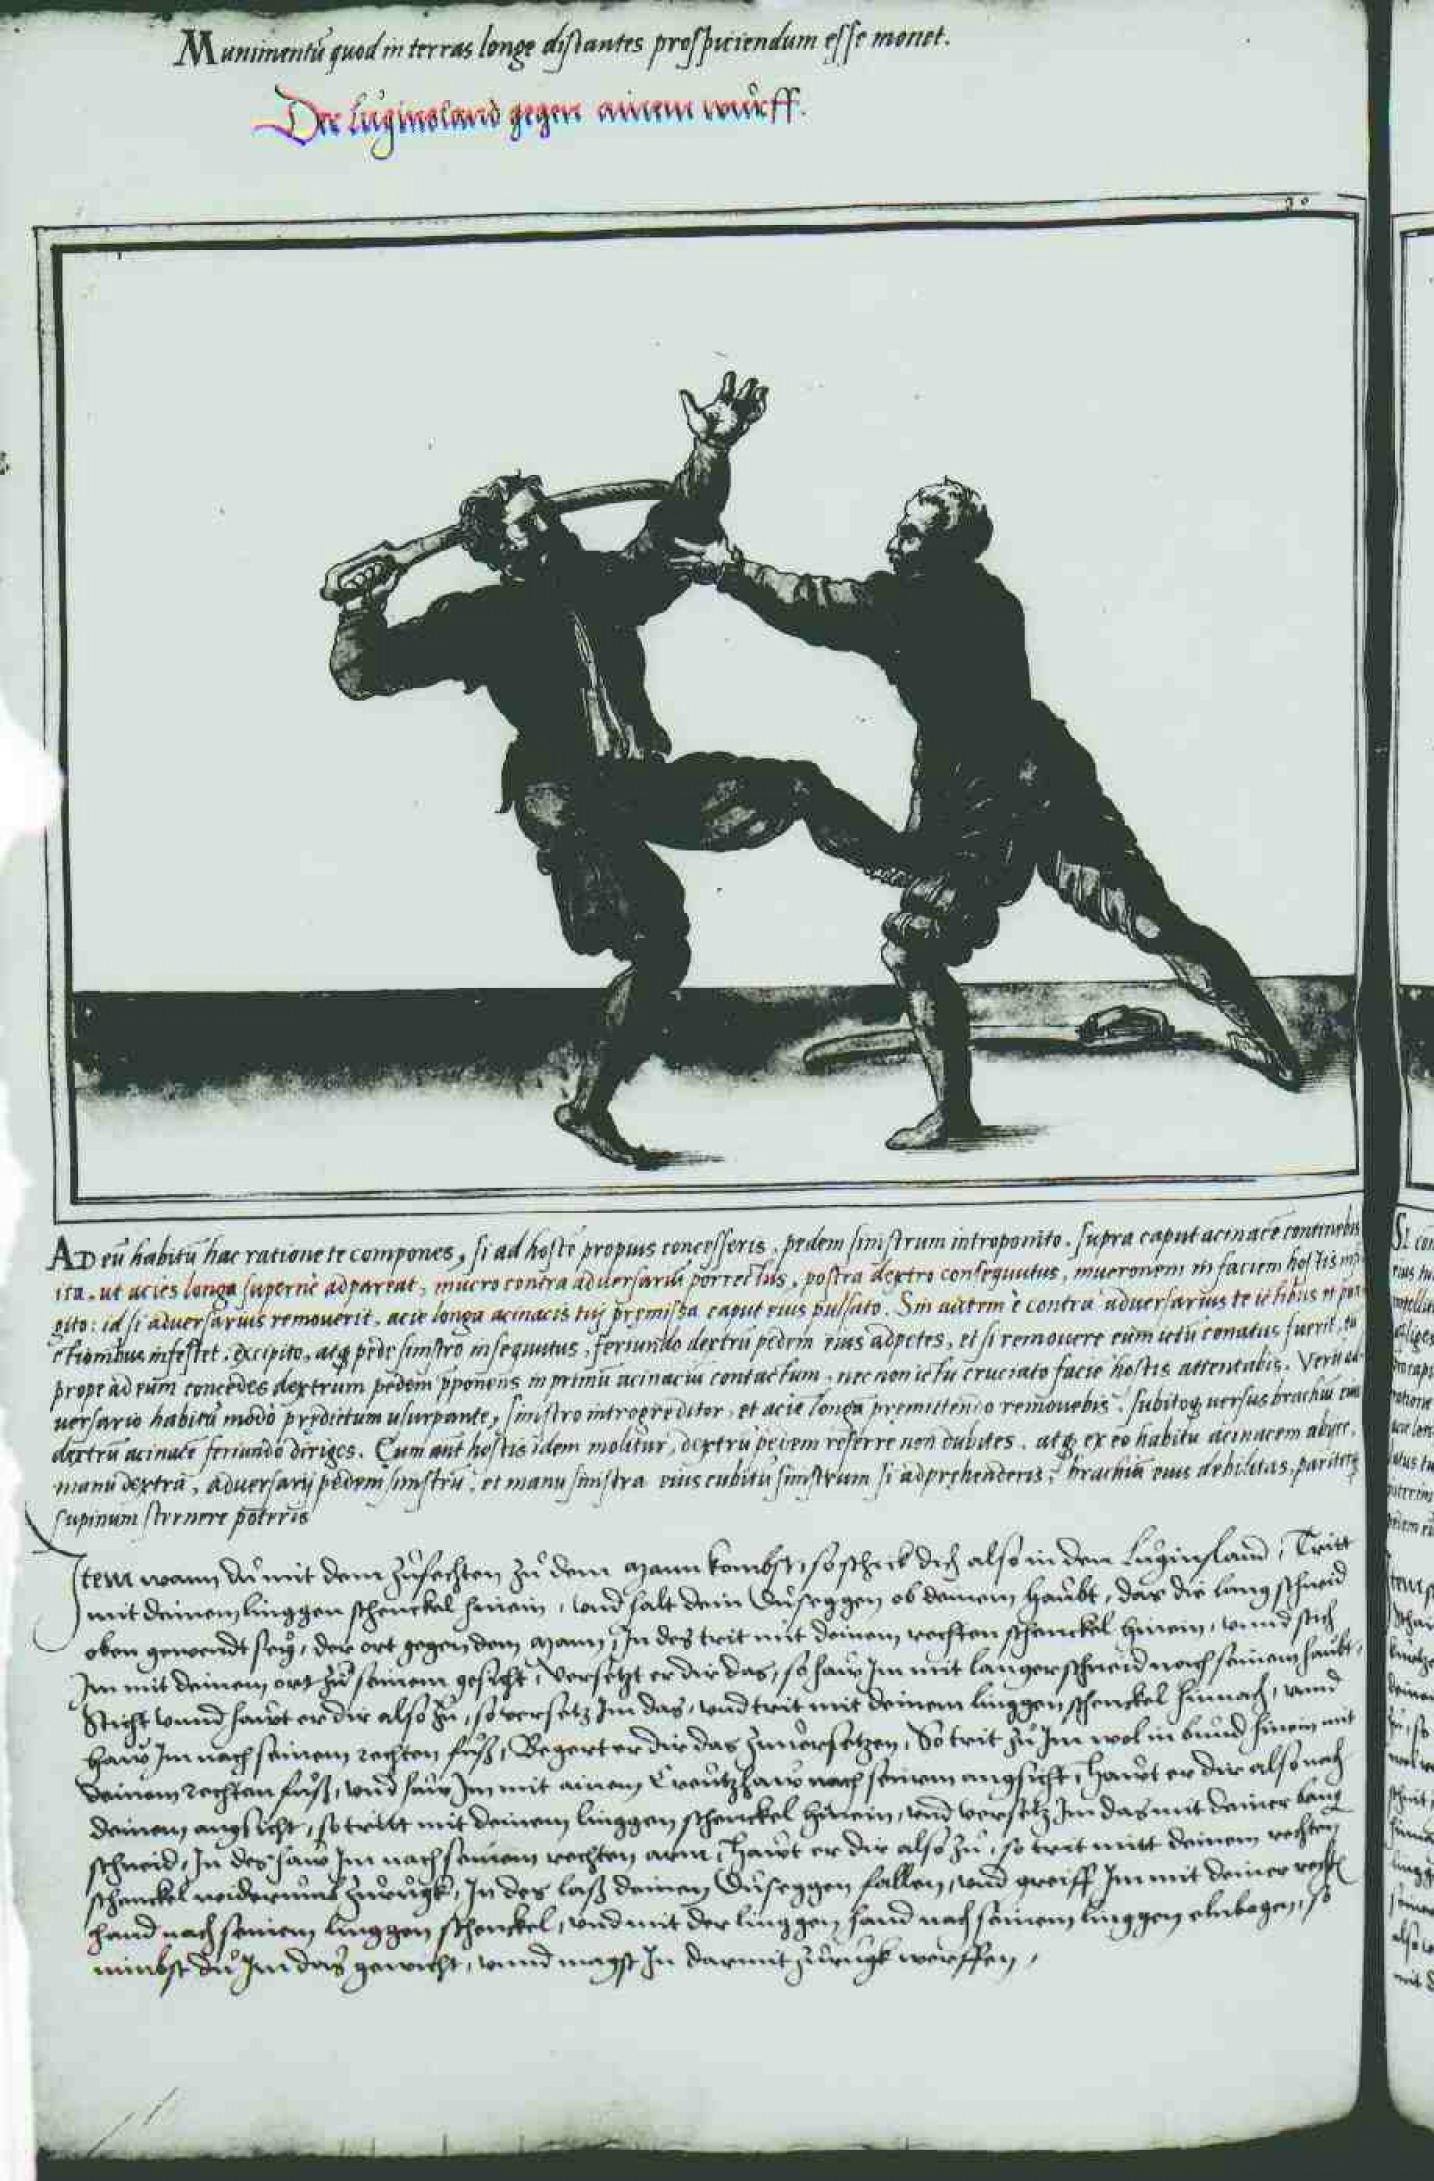 Munimentũ quod in terras longe distantes prospiciendum esse monet.
Der Luginsland gegen ainem wurff.
AD eũ habitũ hac ratione te compones, si ad hostẽ propius concesseris, pedem sinistrum introponito, supra caput acinacẽ continebis
ita, ut acies longa supernè adpareat, mucro contra adversariũ porrectus, postea dextro consequutus, mucronem in faciem hostis
gito: id si adversarius removerit, acie longa acinacis tui premissa caput eius pulsato. Sin autem è contra adversarius te ictibus et pun
ctionibus infestet, excipito, atq pede sinistro insequutus, feriundo dextrũ pedem eius adpetes, et si removere eum ictũ conatus fuerit, tu
prope ad eum concedes dextrum pedem pponens in primũ acinaciũ contactum, nec non ictu cruciato faciẽ hostis attentabis. Verũ ad
versario habitũ modo predictum usurpante, sinistro introgreditor, et acie longa premittendo removebis, subitoq versus brachiũ eius
dextrũ acinacẽ feriundo diriges. Cum aut hostis idem molitur, dextrũ pedem referre non dubites, atq ex eo habitu acinacem abiice,
manu dextra, adversarij pedem sinistrũ, et manu sinistra eius cubitũ sinistrum si adprehenderis, brachiũ eius debilitas, pariterq
supinum sternere poteris
Item wann du mit dem zufechten zu dem Mann kombst, so schick dich also in den Luginsland, Tritt
mit deinem linggen schenckel hinein, und halt dein Duseggen ob deinem haubt, das die lang schneid
oben gewendt sey, der ort gegen dem Mann, In des trit mit deinem rechten schenckel hinein, unnd stich
Im mit deinem ort zu seinem gesicht, Versetzt er dir das, so haw Im mit langer schneid nach seinem haubt,
Sticht unnd hawt er dir also zu, so versetz Im das, und trit mit deinem linggen schenckel hinnach, unnd
haw Im nach seinem rechten fuß, Begert er dir das zuversetzen, So trit zu Im wol in bund hinein mit
deinem rechten fuß, und haw Im mit ainem Creutzhaw nach seinem angsicht, Hawt er dir also nach
deinem angsicht, so tritt mit deinem linggen schenckel hinein, und versetz Im das mit deiner lang
schneid, In des haw Im nach seinem rechten arm, Hawt er dir also zu, so trit mitt deinem rechten
schenckel widerumb zurugk, In des laß deinen Duseggen fallen, und greiff Im mit deiner rechten
hand nach seinem linggen schenckel, und mit der linggen hand nach seinem linggen elnbogen, so
nimbst du Im das gewicht, unnd magst In darmit zurugk werffen,